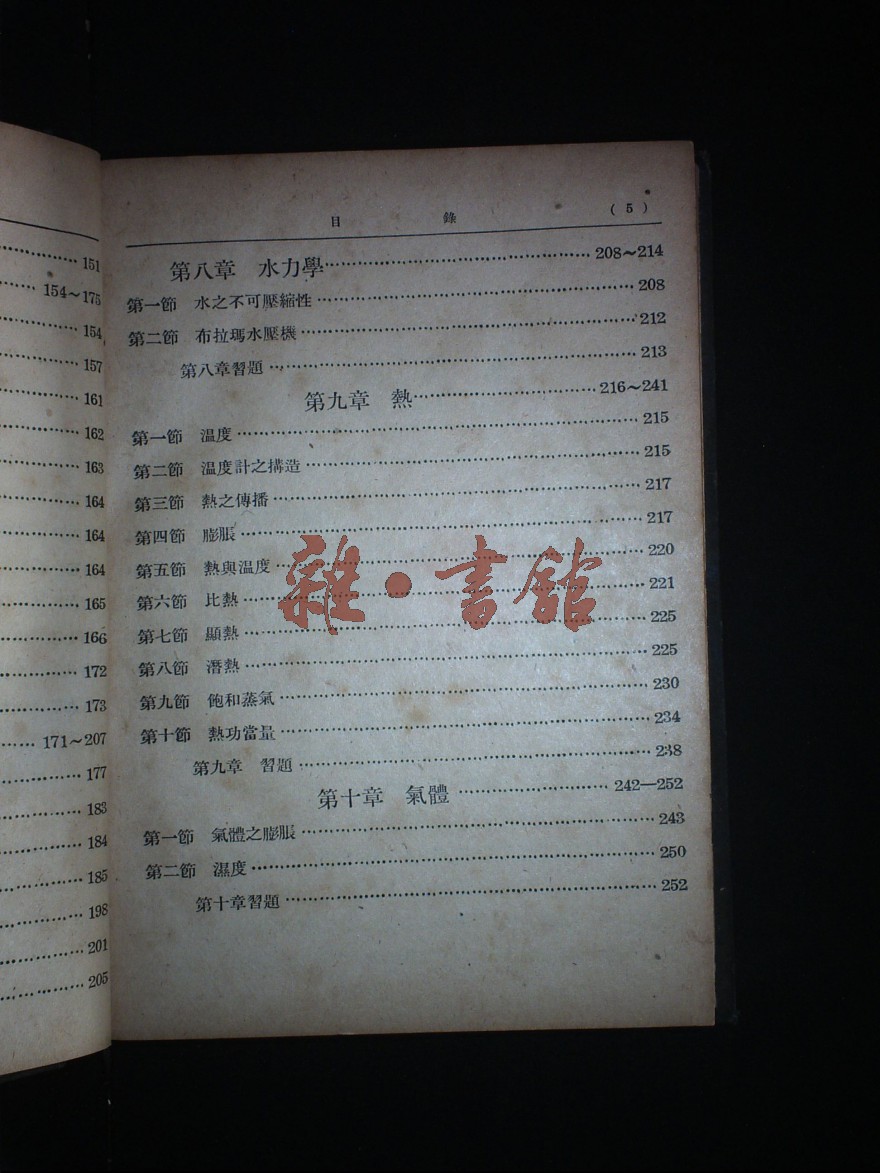 151
154～175
154
157
161
162
163
164
164
164
165
166
172
173
171～207
177
183
184
185
198
201
205
目錄 (5)
第八章 水力學…208～214
第一節 水之不可壓縮性…208
第二節 布拉瑪水壓機…212
第八章習題…213
第九章 熱…216～241
第一節 温度…215
第二節 温度計之搆造…215
第三節 熱之傳播…217
第四節 膨脹…217
第五節 熱與温度…220
第六節 比熱…221
第七節 顯熱…225
第八節 潛熱…225
第九節 飽和蒸氣…230
第十節 熱功當量…234
第九章 習題…238
第十章 氣體…242—252
第一節 氣體之膨脹…243
第二節 濕度…250
第十章習題…252
雜·書舘